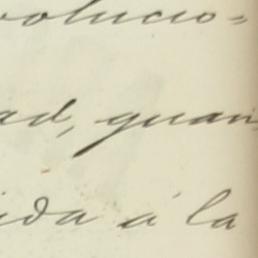 volucio-
ad, quan
ida á la